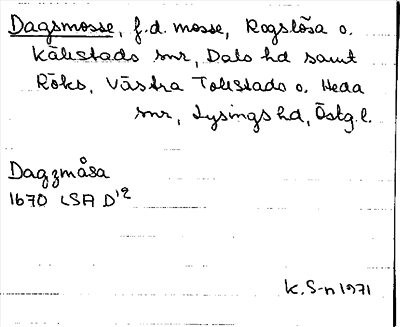 Dagsmosse, f.d. mosse, Rogslösa o.
Källstads snr, Dals hd samt
Röks, Västra Tollstads o. Heda
snr, Lysings hd, Östg.l.
Dagzmåsa
1670 LSA D¹²
K.S-n 1971